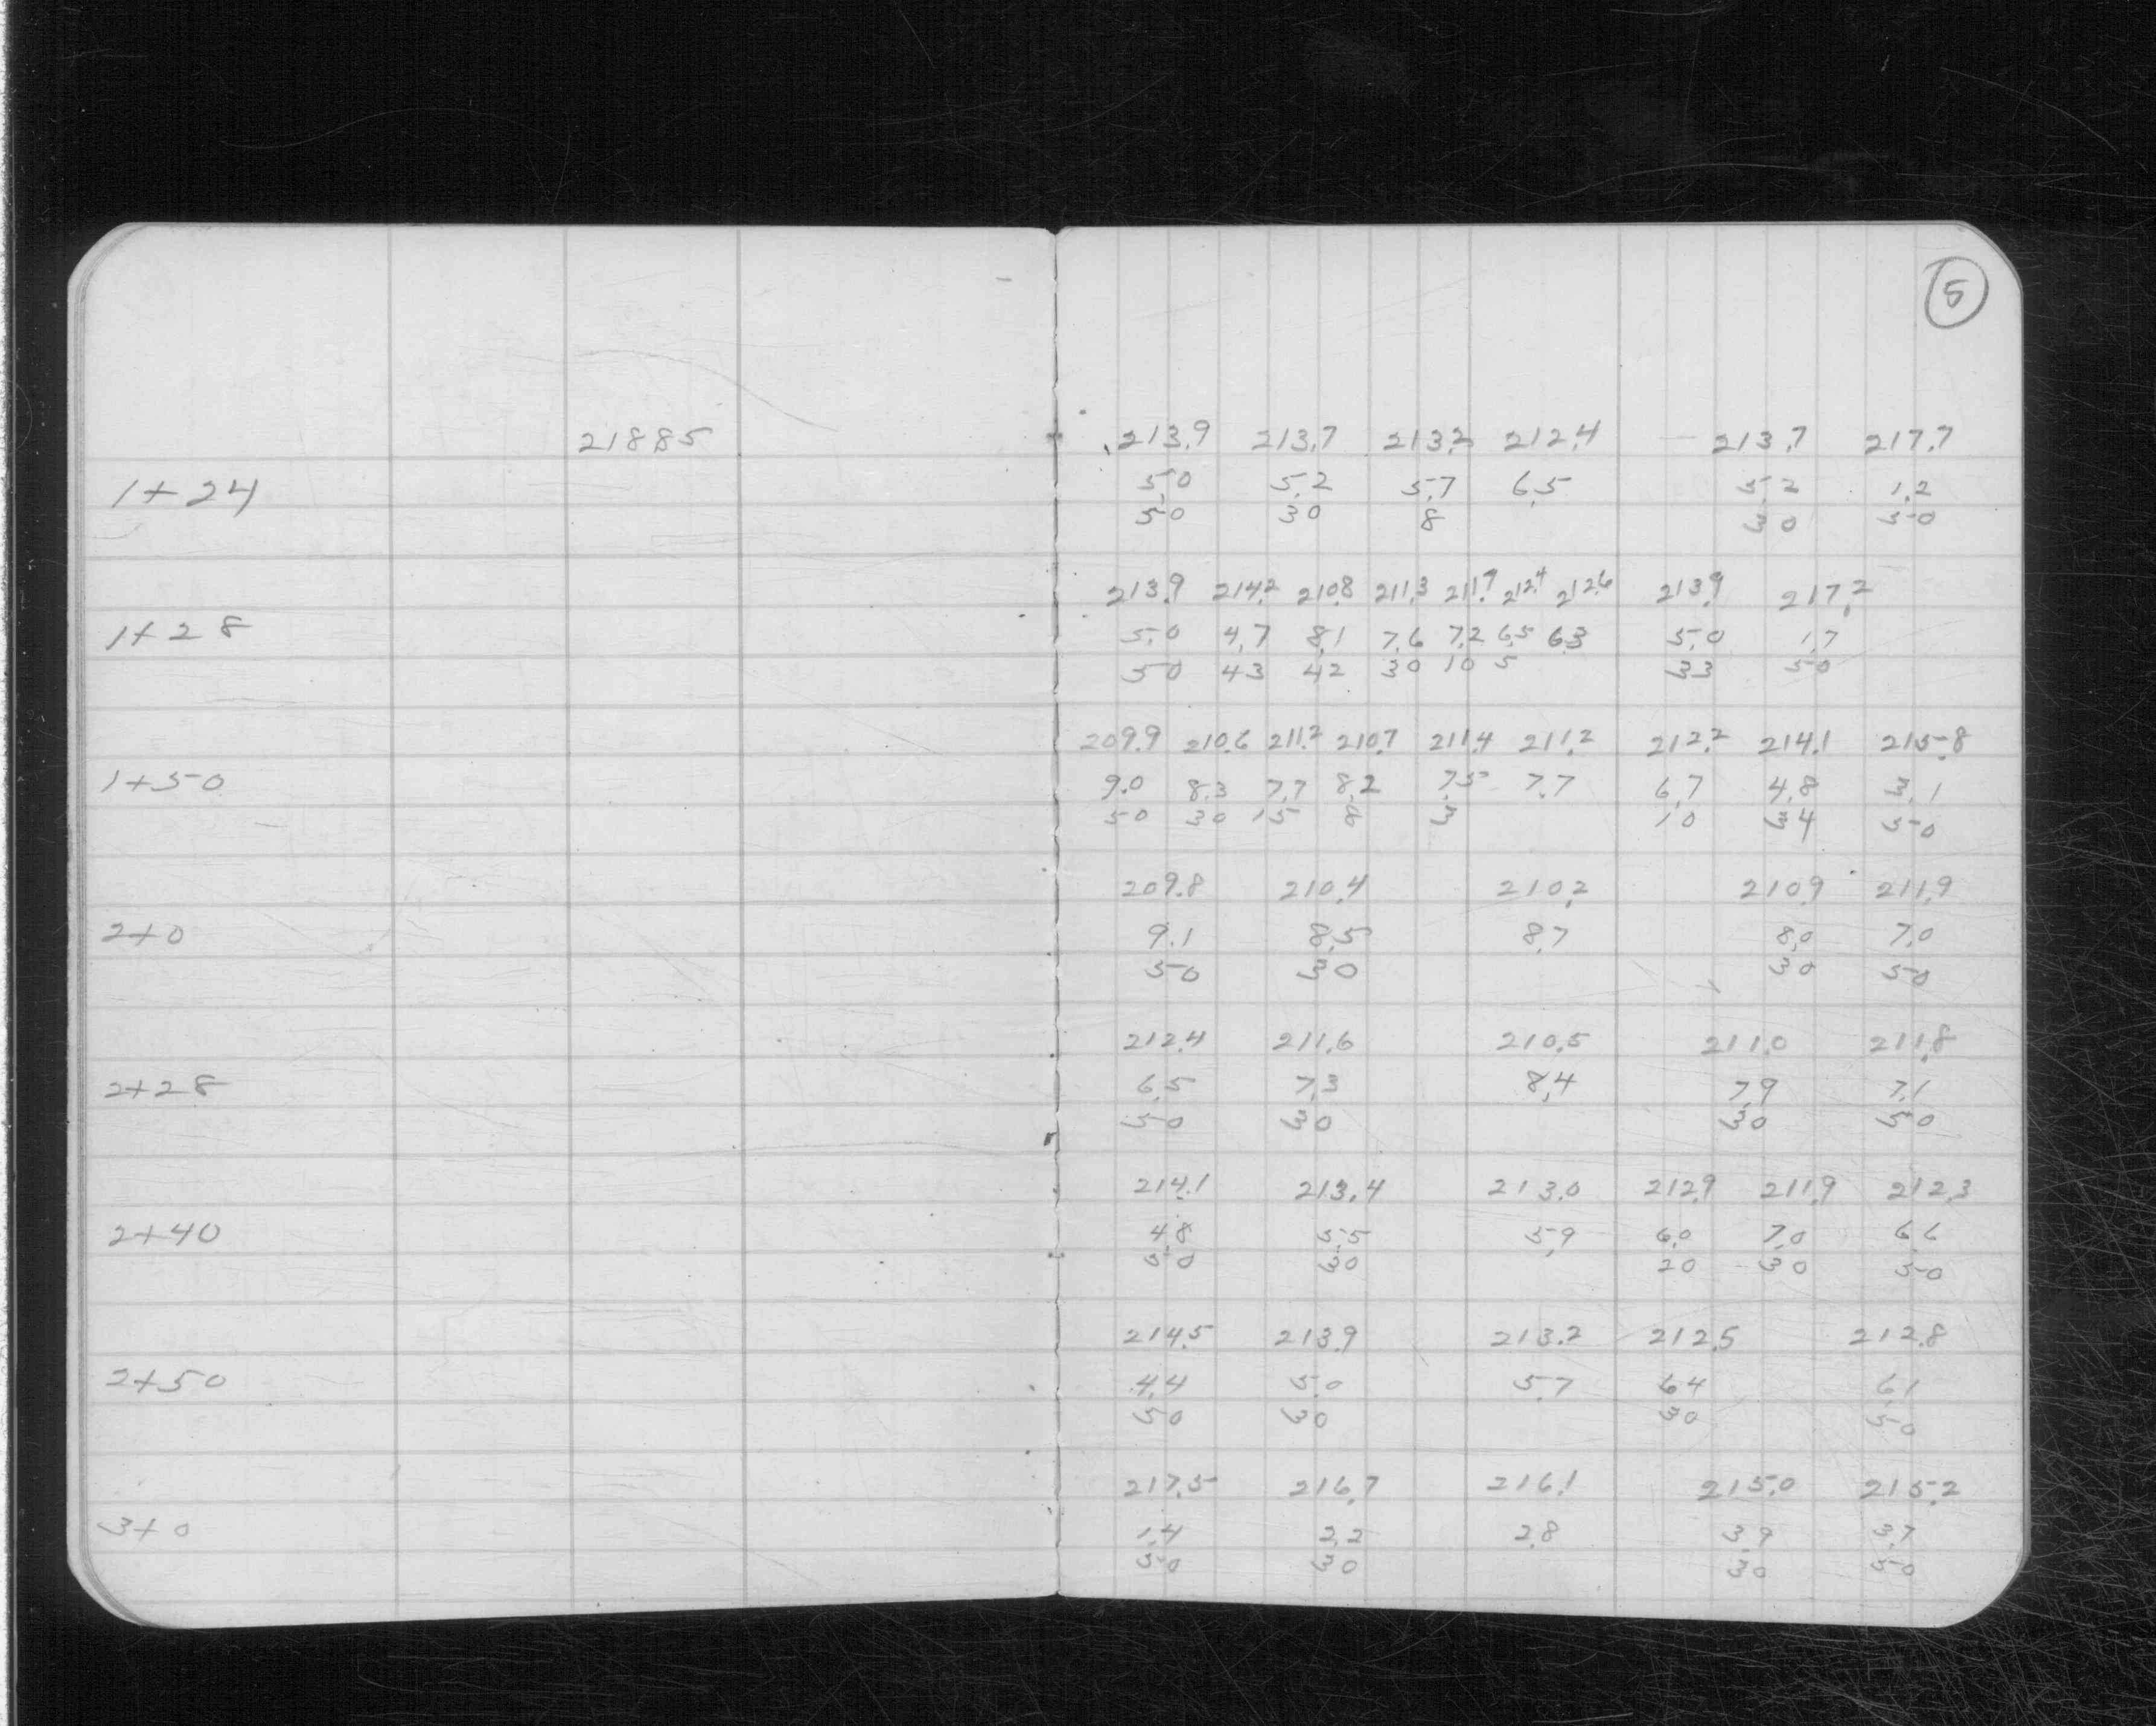 5
218.85 213.9 213.7 213.2 212.4 213.7 217.7
1+24 5.0 5.2 5.7 6.5 5.2 1.2
50 30 8 30 50
213.9 214.2 210.8 211.3 211.7 212.4 212.6 213.9 217.2
1+28 5.0 4.7 8.1 7.6 7.2 6.5 6.3 5.0 1.7
50 43 42 30 10 5 33 50
209.9 210.6 211.2 210.7 211.4 211.2 212.2 214.1 215.8
1+50 9.0 8.3 7.7 8.2 7.5 7.7 6.7 4.8 3.1
50 30 15 8 3 10 34 50
209.8 210.4 210.2 210.9 211.9
2+0 9.1 8.5 8.7 8.0 7.0
50 30 30 50
212.4 211.6 210.5 211.0 211.8
2+28 6.5 7.3 8.4 7.9 7.1
50 30 30 50
214.1 213.4 213.0 212.9 211.9 212.3
2+40 4.8 5.5 5.9 6.0 7.0 6.6
50 30 20 30 50
214.5 213.9 213.2 212.5 212.8
2+50 4.4 5.0 5.7 6.4 6.1
50 30 30 50
217.5 216.7 216.1 215.0 215.2
3+0 1.4 2.2 2.8 3.9 3.7
50 30 30 50